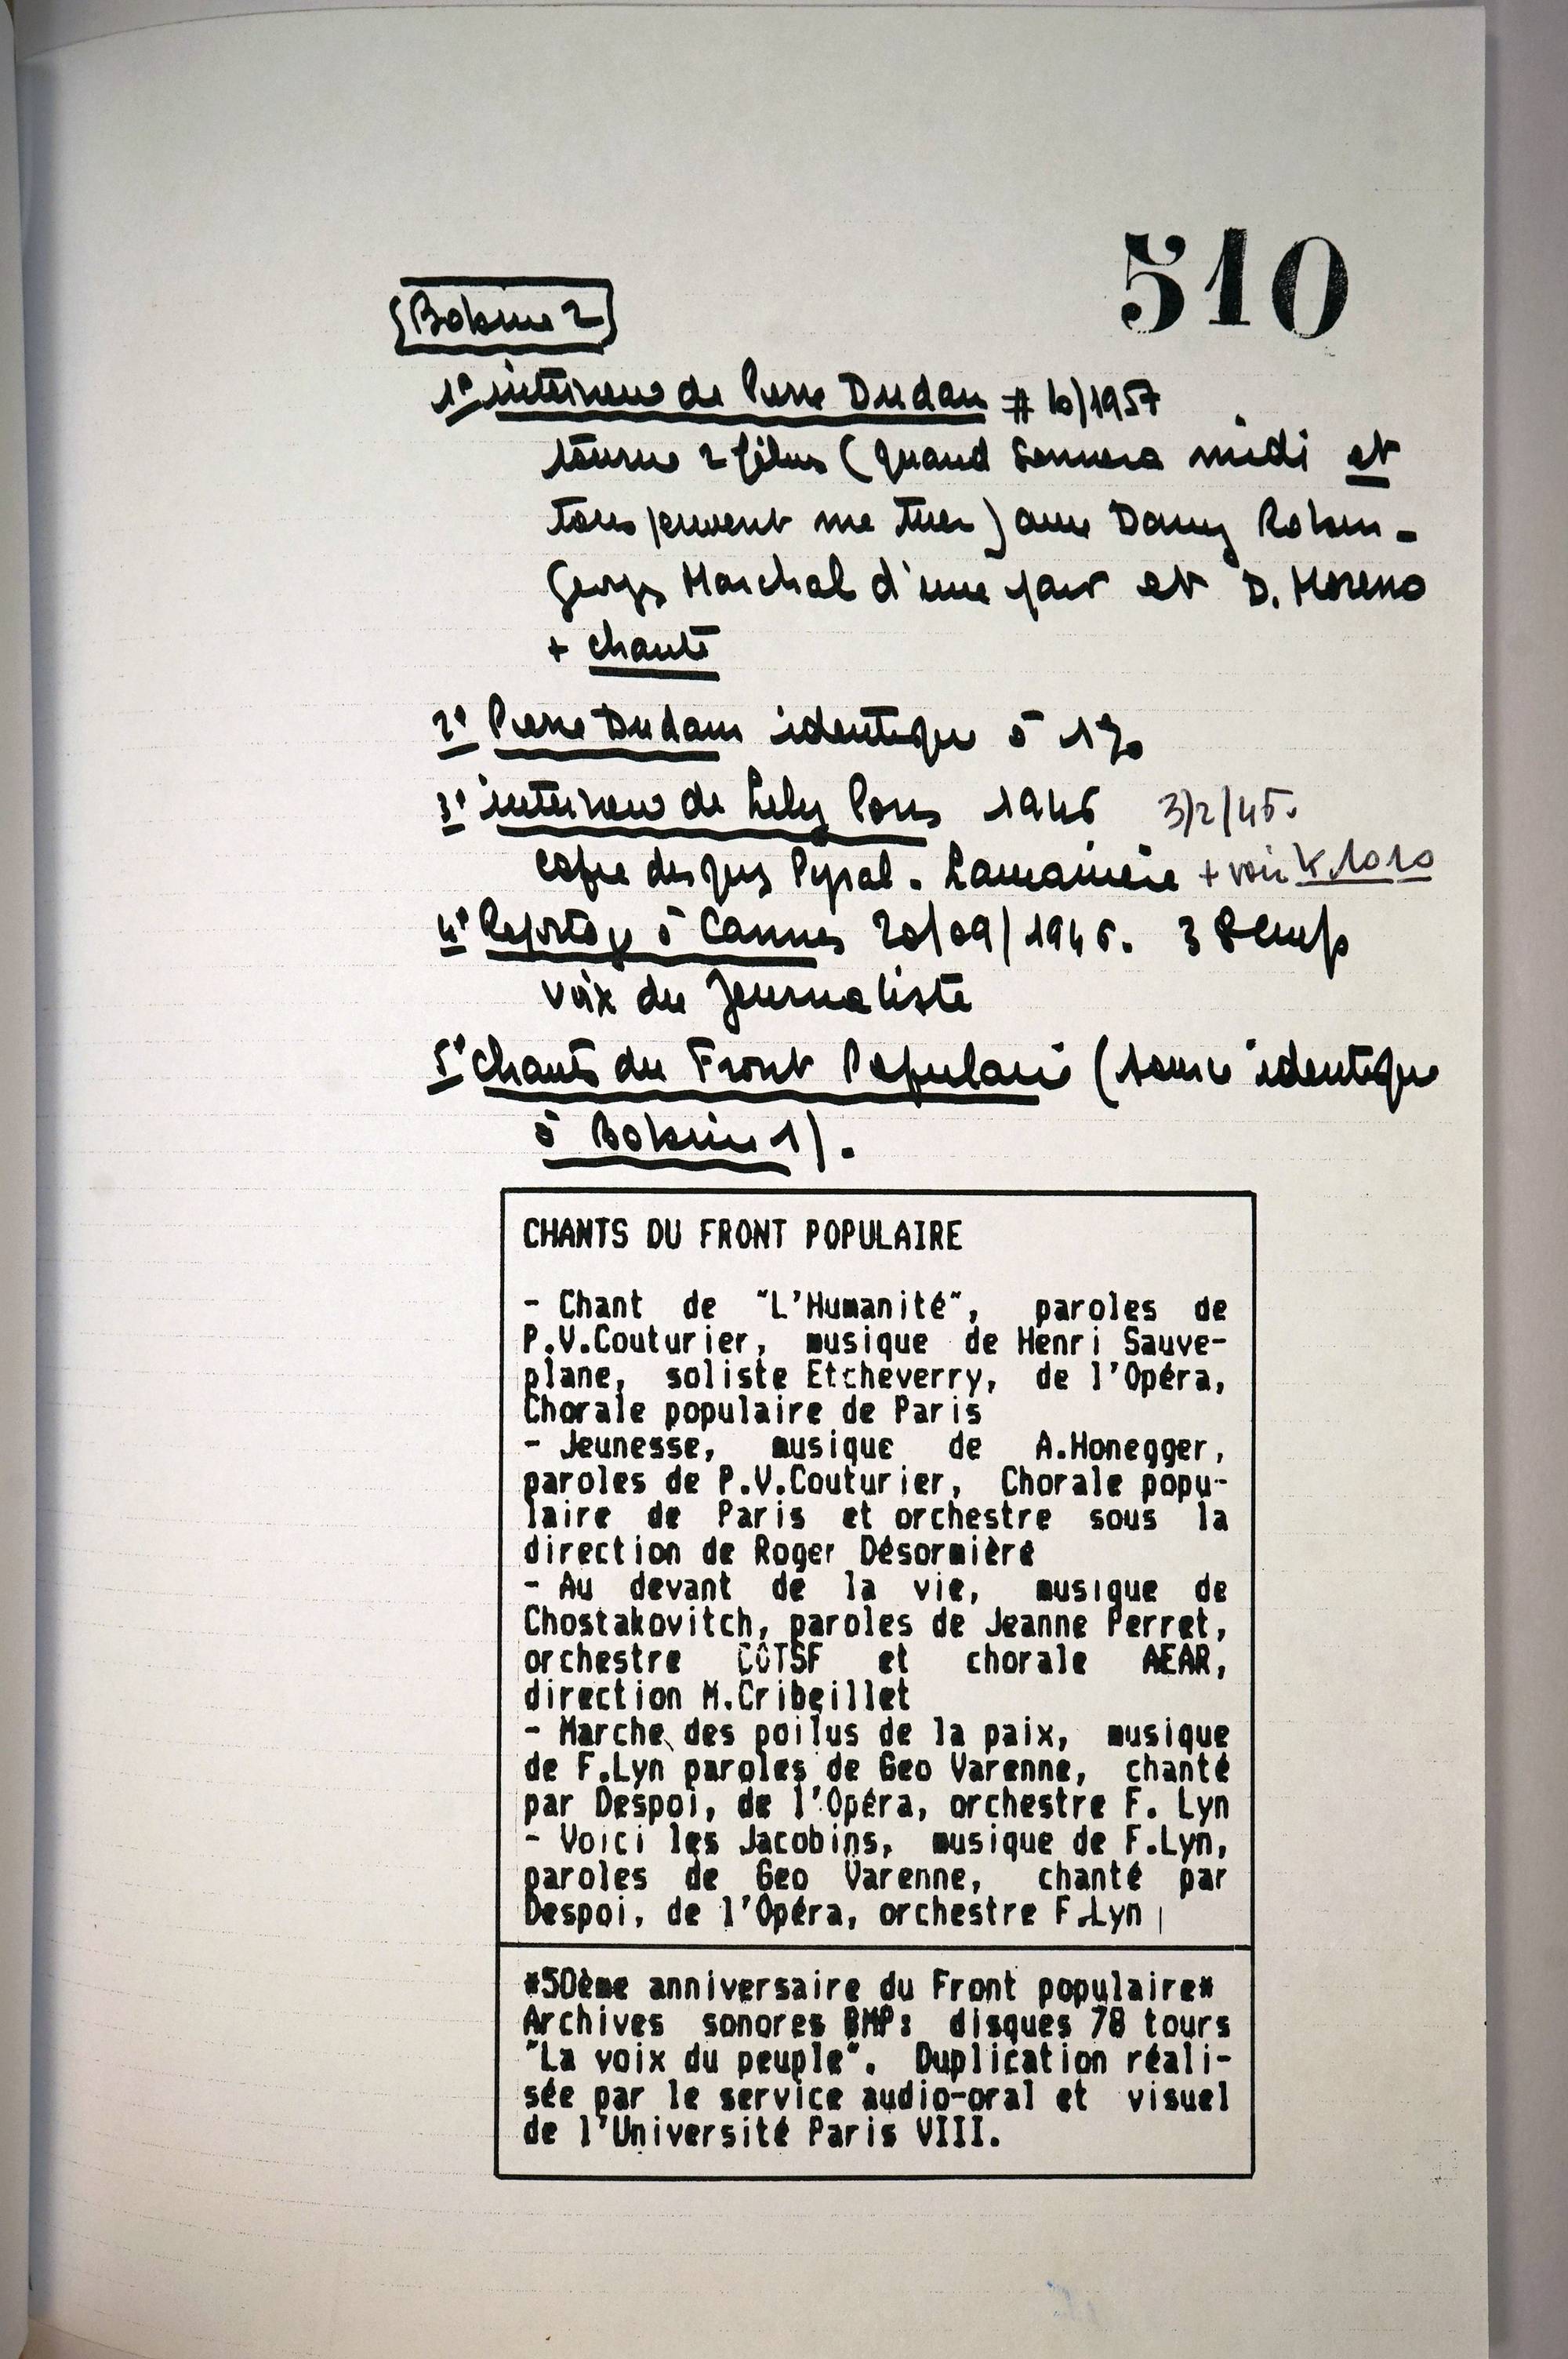 510
Bobine 2
1° interview de Pierre Dudan # 10/1957
tourne 2 films (quand sonnera midi et
tous peuvent me tuer) avec Dany Robin -
Georges Marchal d'une part et D. Moreno
+ chante
2° Pierre Dudan identique à 1°
3° interview de Lily Pons 1945 3/2/45.
copie disques Pyral. + voir K 1010
4° Reportage à Cannes 20/09/1946.
voix du journaliste
5° chants du Front Populaire (source identique
à Bobine 1).
CHANTS DU FRONT POPULAIRE
- Chant de "L'Humanité", paroles de
P.V.Couturier, musique de Henri Sauve-
plane, soliste Etcheverry, de l'Opéra,
Chorale populaire de Paris
- Jeunesse, musique de A.Honegger,
paroles de P.V.Couturier, Chorale popu-
laire de Paris et orchestre sous la
direction de Roger Désormière
- Au devant de la vie, musique de
Chostakovitch, paroles de Jeanne Perret,
orchestre CGTSF et chorale AEAR,
direction M.Cribeillet
- Marche des poilus de la paix, musique
de F.Lyn paroles de Geo Varenne, chanté
par Despoi, de l'Opéra, orchestre F. Lyn
- Voici les Jacobins, musique de F.Lyn,
paroles de Geo Varenne, chanté par
Despoi, de l'Opéra, orchestre F.Lyn
*50ème anniversaire du Front populaire*
Archives sonores BMP: disques 78 tours
"La voix du peuple". Duplication réali-
sée par le service audio-oral et visuel
de l'Université Paris VIII.